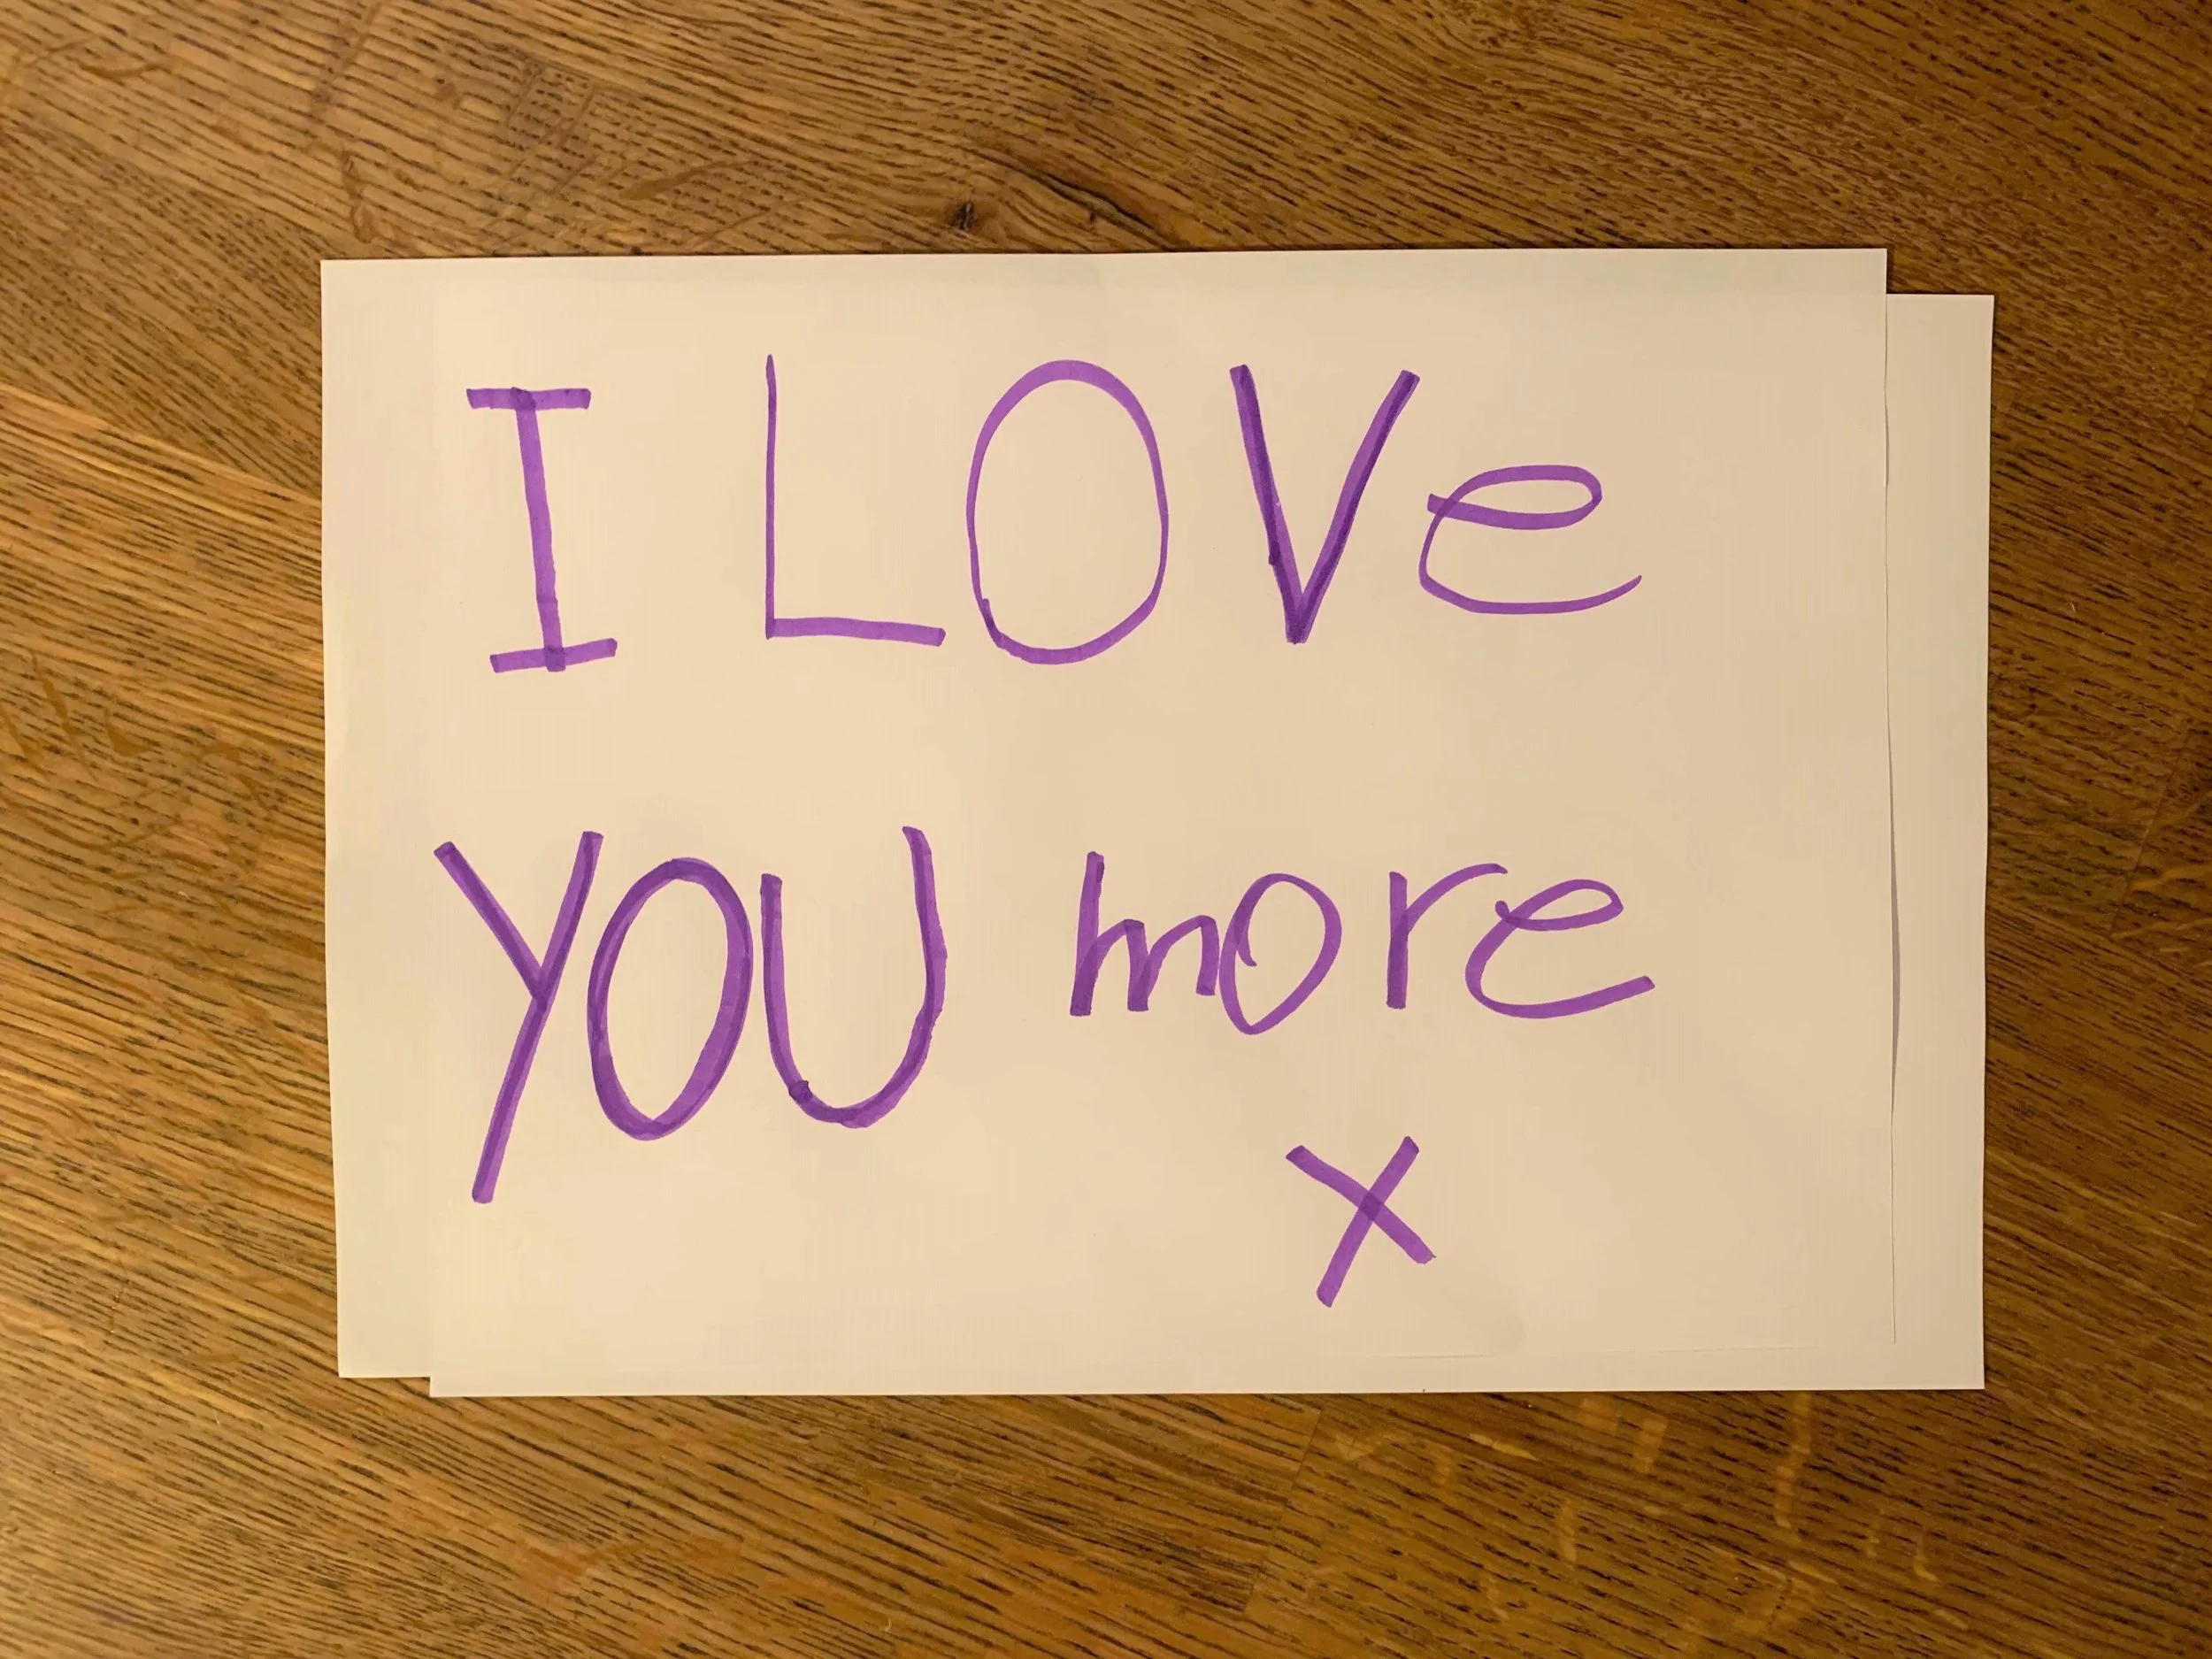 I LOVe
YOU more
x